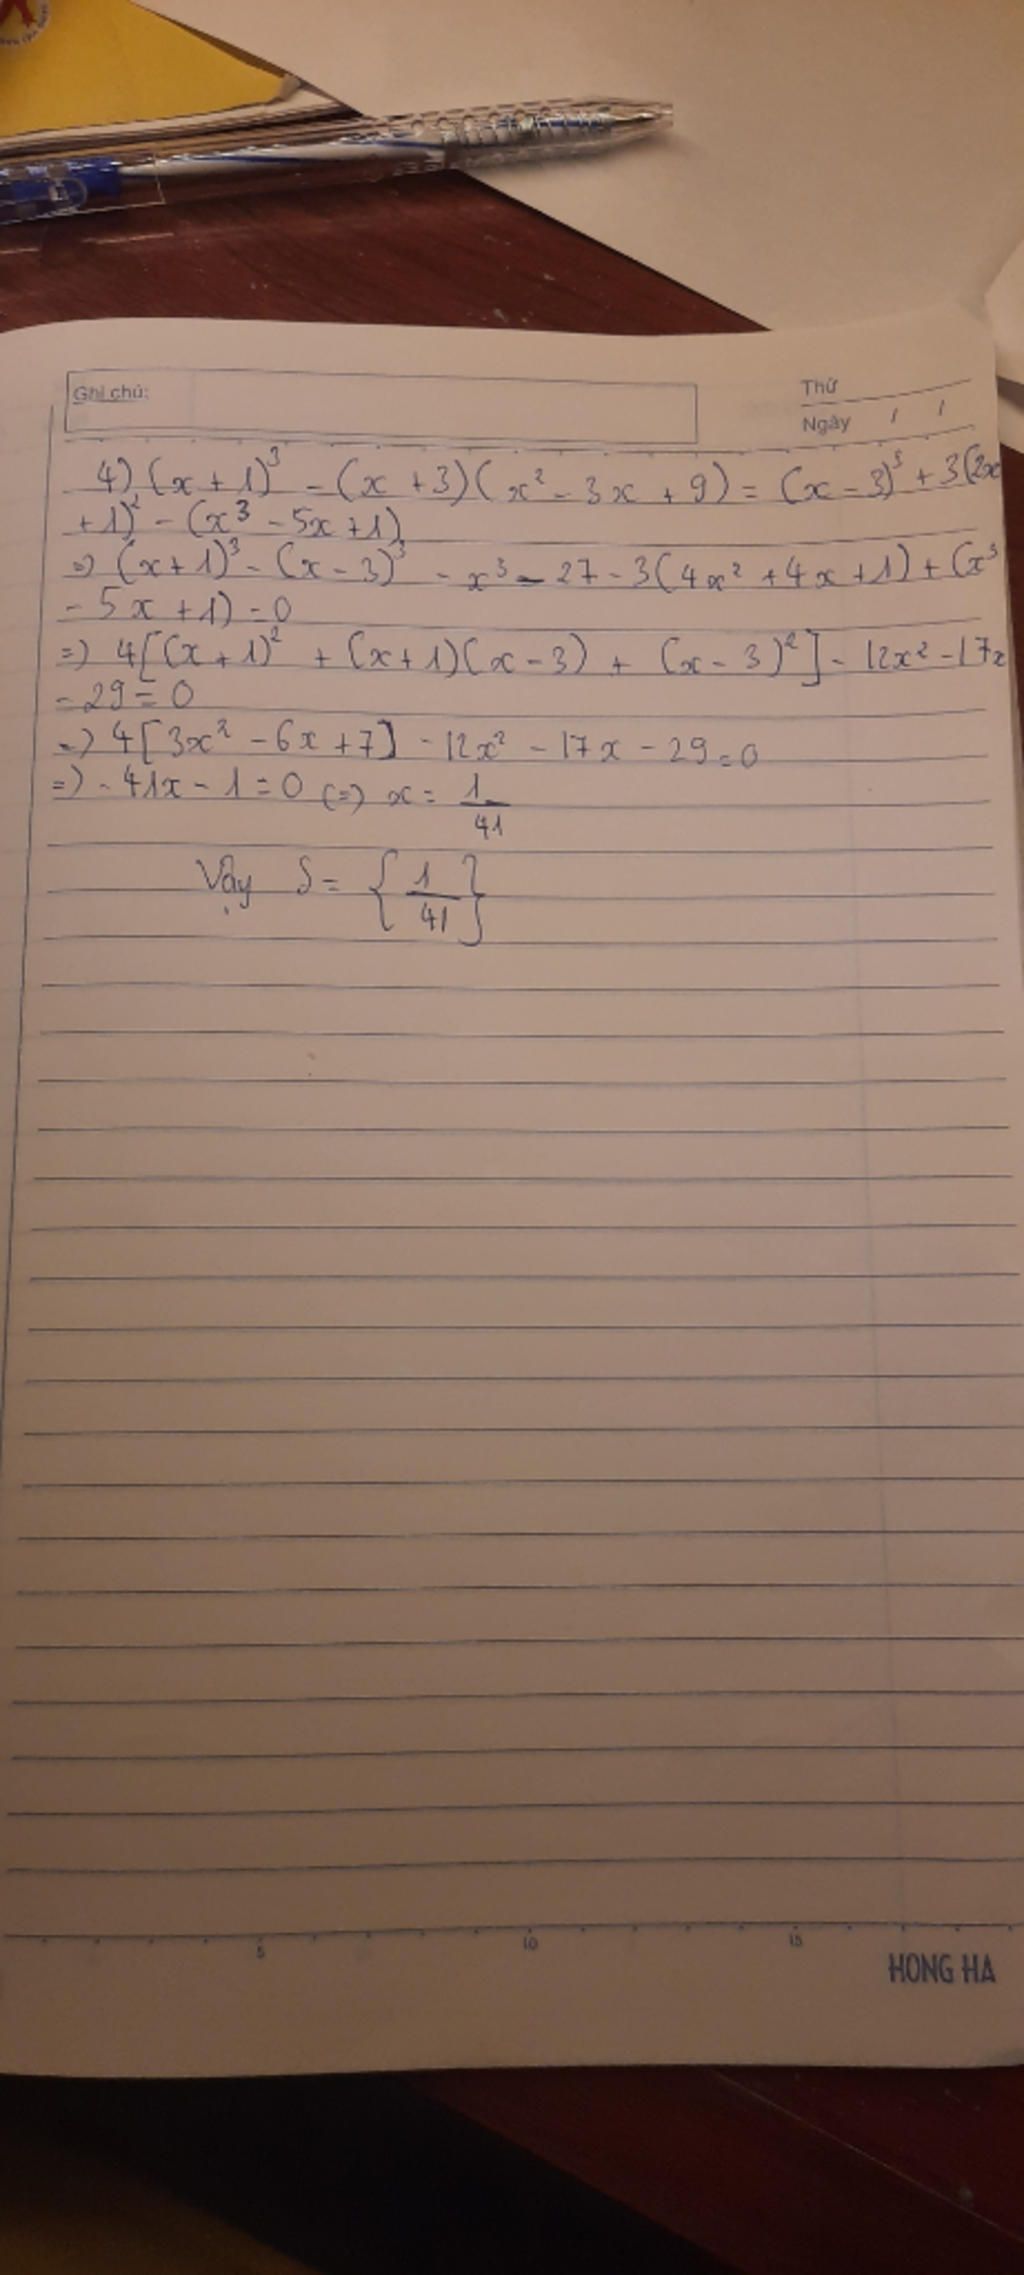 Ghi chú:
Thứ
Ngày / /
4) (x + 1)³ - (x + 3)(x² - 3x + 9) = (x - 3)³ + 3(2x
+ 1)² - (x³ - 5x + 1)
=) (x + 1)³ - (x - 3)³ - x³ - 27 - 3(4x² + 4x + 1) + (x³
- 5x + 1) = 0
=) 4[(x + 1)² + (x + 1)(x - 3) + (x - 3)²] - 12x² - 17x
- 29 = 0
=) 4[3x² - 6x + 7] - 12x² - 17x - 29 = 0
=) - 41x - 1 = 0 (=) x = 1/41
Vậy S = {1/41}
5 10 15
HONG HA